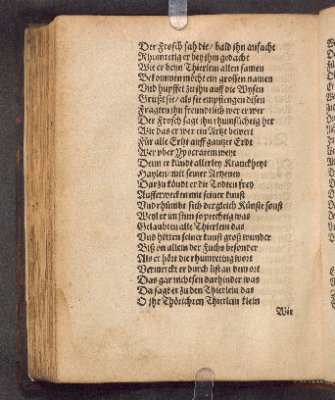 Der Frosch sah die / bald ihn ansacht
Rhümretig er bey ihm gedacht
Wie er denn Thierlein allen samen
Bekommen möcht ein grossen namen
Vnd hupffet zu ihn auff die Wysen
Grüßt sie / als sie empfiengen disen
Fragten ihn freundtlich wer er wer
Der Frosch sagt ihn rhumsüchtig her
Wie das er wer ein Artzt bewert
Für alle Ertzt auff gantzer Erdt
Wer vber Ypocratem weyt
Denn er kündt allerley Kranckheyt
Haylen / mit seiner Artzeney
Darzu köndt er die Todten frey
Aufferwecken mit seiner kunst
Vnd rhümbt sich dergleich Künste sonst
Weyl er im sinn so prechtig was
Gelaubten alle Thierlein das
Vnd hetten seiner kunst groß wunder
Biß on allein der Fuchs besonder
Als er hört die rhumreting wort
Vermercket er durch list an dem ort
Das gar nichtsen darhinder was
Da sagt er zu den Thierlein das
O ihr Thörichten Thierlein klein
Wie